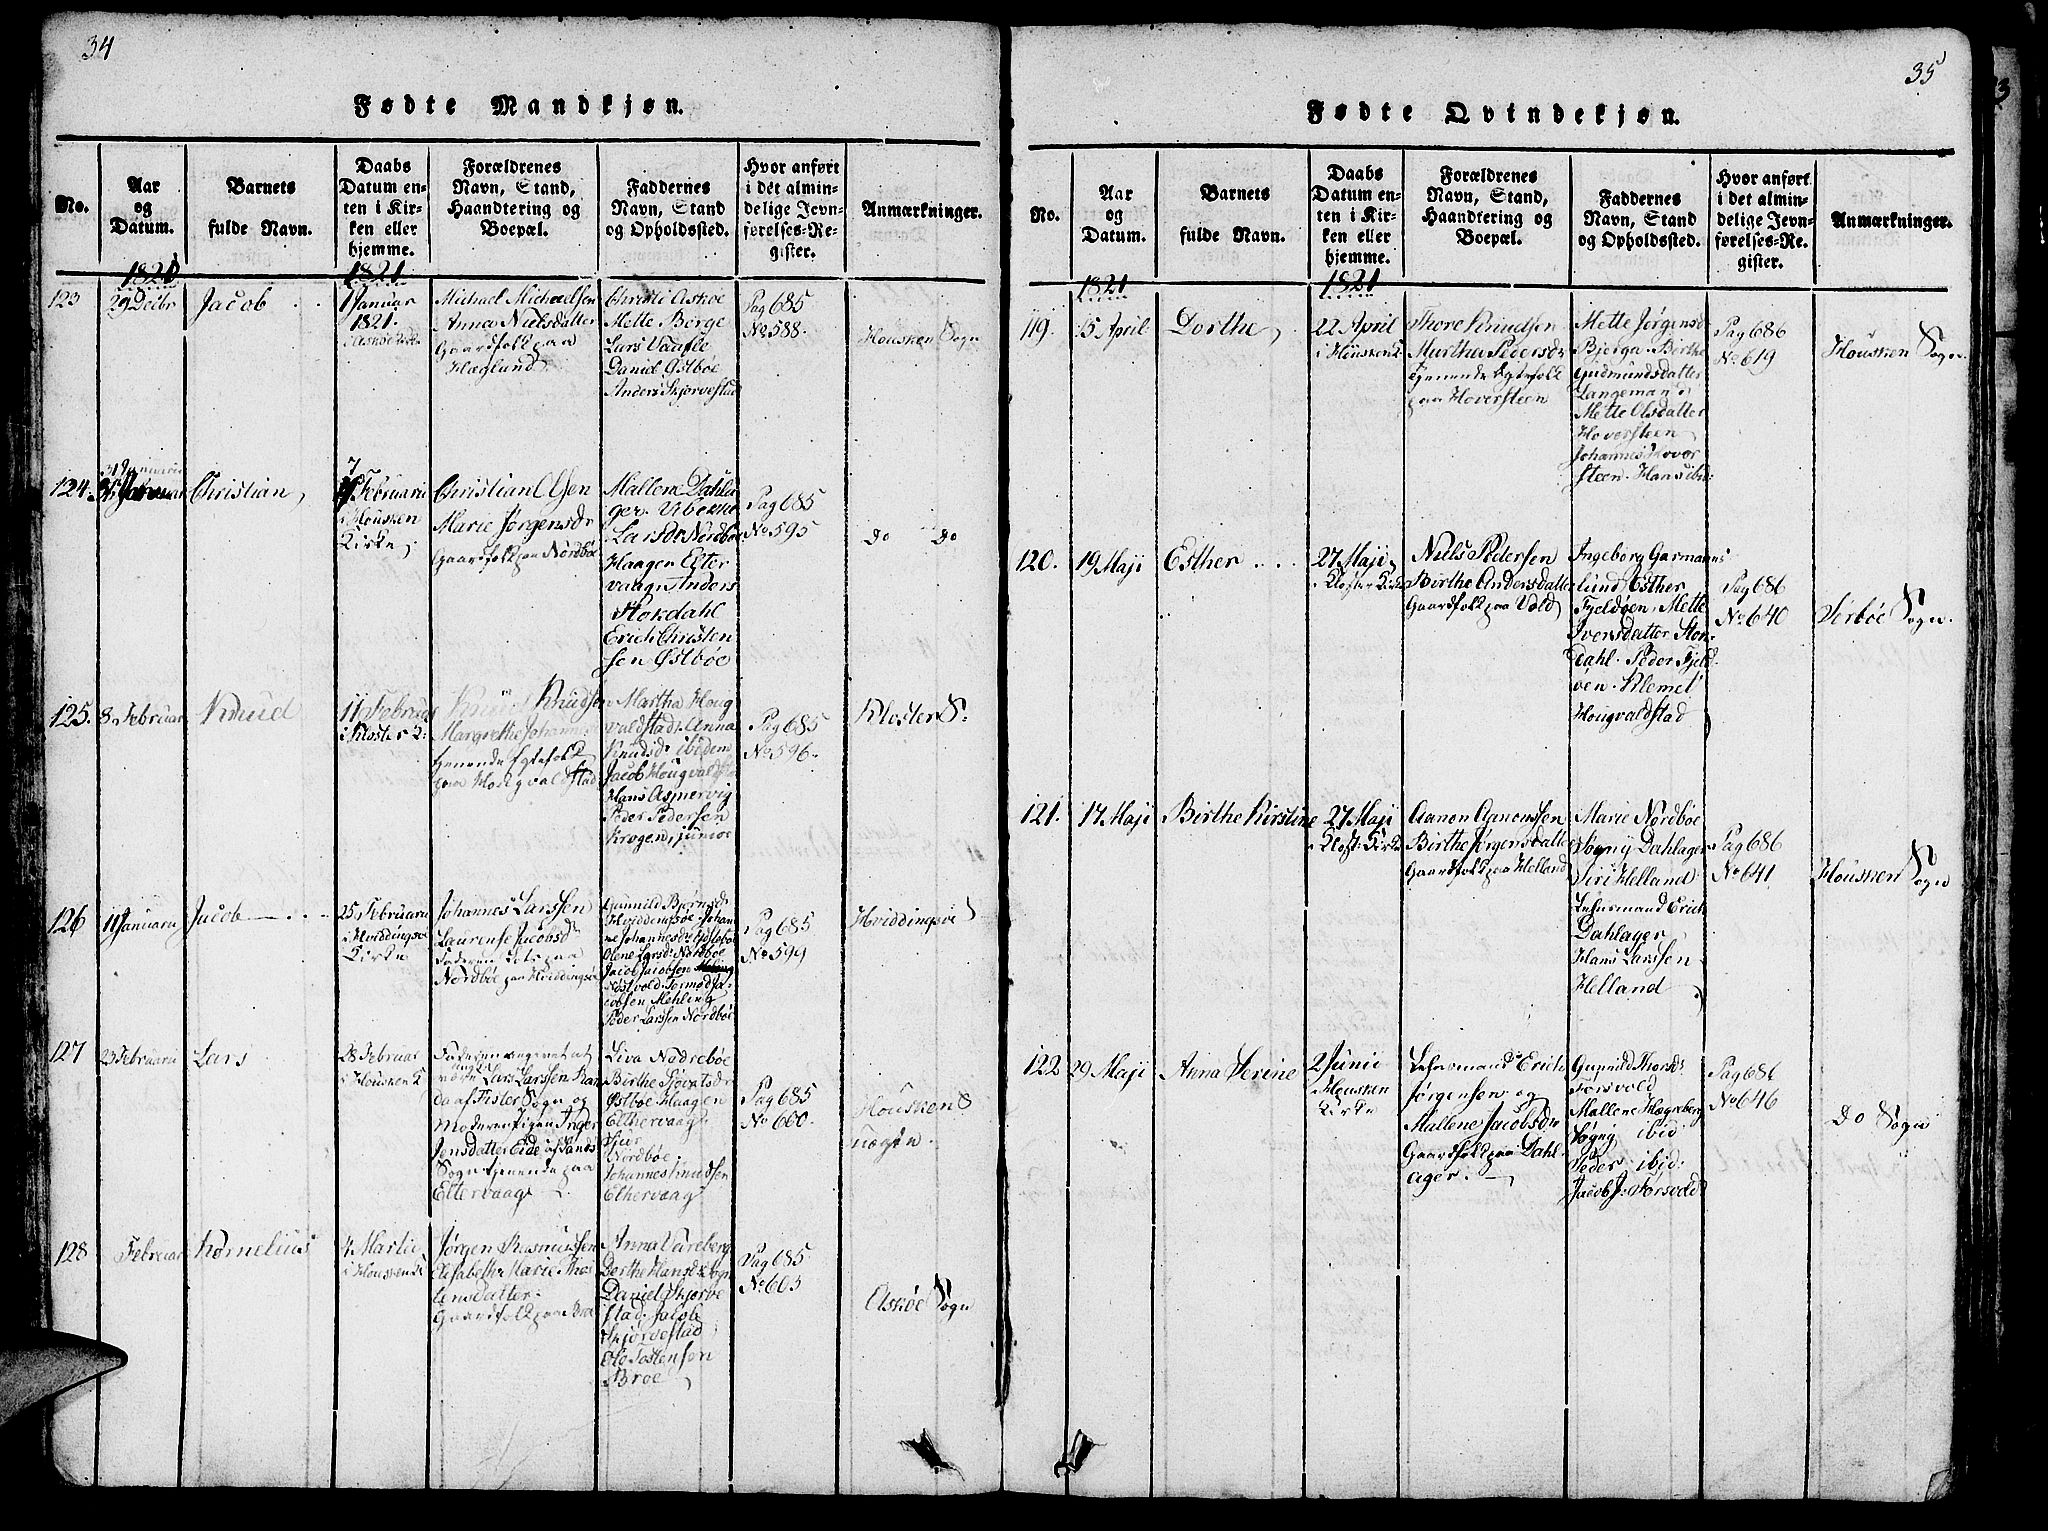 34
Fødte Mandkjøn.
No.
Aar
og
Datum.
Barnets
fulde Navn.
Daabs
Datum en-
ten i Kir-
ken eller
hjemme.
Forældrenes
Navn, Stand,
Haandtering og
Boepæl.
Faddernes
Navn, Stand
og Opholdssted.
Hvor anført
i det almin-
delige Jevn-
førelses-Re-
gister.
Anmærkninger.
1821
123
29 Decbr
Jacob
1 Januar
1821.
Michael Michaelsen
Anna Nielsdatter
Gaardfolk paa
Hæglund
Christi Askøe
Mette Berge
Lars Vaafle
Daniel Østbøe
Anders Skjørvestad
Pag 685
No 588.
Housken Sogn
124.
31 Januarii
Christian,
7
Februarii
i Housken
Kirke,
Christian Olsen
Marie Jørgensdr
Gaardfolk paa Nordbøe
Mallene Dahla
ger. Vibekke
Larsdr Nordbøe
Haagen Elter
vaag. Anders
Stokdahl
Erich Christen
sen Østbøe
Pag 685
No 595
do do
125.
8. Februar
Knud
11 Februar
i Kloster K:
Knud Knudsen
Margrethe Johannis
tjenende Egtefolk
paa Hougvaldstad
Martha Houg
valdstad. Anna
Knudsdr ibidem
Jacob Hougvaldst
Hans Asmervig
Peder Pedersen
Krogen, junior
Pag 685
No 596.
Kloster S:
126
11 Januarii
Jacob
25 Februarii
i Hviddingsøe
Kirke
Johannes Larssen
Laurense Jacobsd
Nordbøe paa Hviddingsøe
Gunnild Bjørnsdr
Hviddingsøe. Johan
ne Johannesdr
Olene Larsd: Nordbøe
Jacob Jacobsen
Tormod Ja-
cobsen Mehling
Peder Larssen Nordbøe
Pag 685
No 599
Hviddingsøe S
127
23 Februarii
Lars
28 Februar
i Housken K
Faderen angivet at
være Lars Larssen
da af Fister Sogn og
Moderen Pigen Inger
Jensdatter Eide af
Sogn tjenende paa
Eltervaag
Liva Nodrebøe
Birthe Sjovatsdr
Østbøe Haagen
Elthervaag.
Nordbøe.
Johannes Knudsen
Elthervaag
Pag 685
No 600.
Housken S
128
Februar
Kornelius
4 Martii
i Housken K
Jørgen Rasmussen
Elisabeth Marie Thos
tensdatter.
Gaardfolk paa Broe
Anna Vareberg
Dorthe Hansdr Sogn
Daniel Skjørve
stad. Jacob
Skjørvestad
Ole Tostensen
Broe
Pag 685
No 603
Askøe Sogn
35
Fødte Qvindekjøn.
No.
Aar
og
Datum.
Barnets
fulde Navn.
Daabs
Datum en-
ten i Kir-
ken eller
hjemme.
Forældrenes
Navn, Stand,
Haandtering og
Boepæl.
Faddernes
Navn, Stand
og Opholdssted.
Hvor anført
i det almin-
delige Jevn-
førelses-Re-
gister.
Anmærkninger.
1821
1821
119.
15 April
Dorthe,
22 April
i Housken K
Thore Knudsen
Martha Pedersdr
tjenende Egtefolk
paa Hoversteen
Mette Jørgensd
Bjerga. Birthe
Gudmundsdatter
Langeman d
Mette Olsdatter
Hoversteen
Johannes Hover
steen. Hans ibid:
Pag 686
No 619
Housken Sogn
120.
19 Maji
Esther
27 Maji
i Kloster Kirke
Niels Pedersen
Birthe Andersdatter
Gaardfolk paa Vold
Ingeborg Garmanns
lund Esther
Fjeldøen. Mette
Iversdatter Stok-
dahl. Peder Fjeld
øen. Klemet
Hougvaldstad
Pag 686
No 640
Sørbøe Sogn.
121.
17 Maji
Birthe Kirstine
27 Maji
i Klost: Kirke
Aanon Aanonssen
Birthe Jørgensdatter
Gaardfolk paa Helland
Marie Nordbøe
Sogny Dahlager
Siri Helland
Lehnsmand Erich
Dahlager
Hans Larssen
Helland
Pag 686
No 641
Housken Sogn
122
29 Maji
Anna Serine
2 Junii
i Housken
Kirke
Lehnsmand Erich
Jørgensen og
Mallene Jacobsdr
Gaardfolk paa Dahl-
ager.
Gunnild Thorsdr
Førsvold
Mallene Hægreberg
Sogny ibid
Peder ibid:
Jacob J. Førsvold
Pag 686
No 646
do Sogn